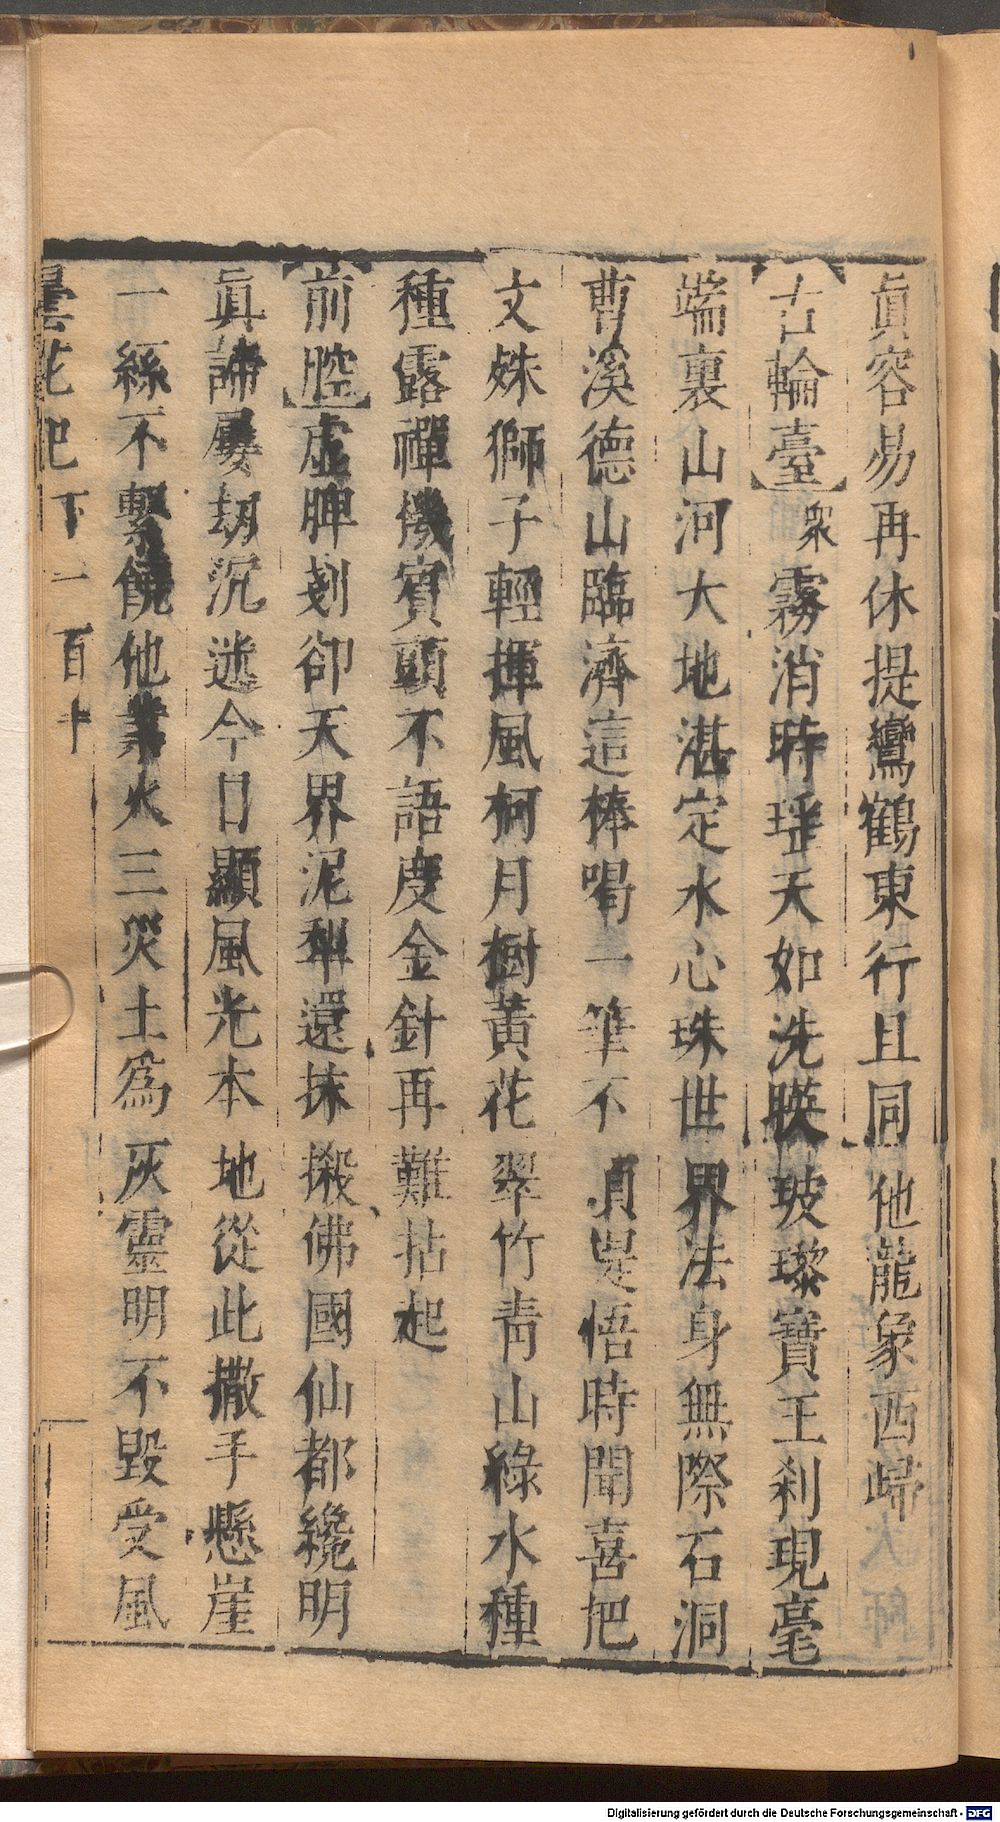 眞容易再休提鸞鶴東行且同他龍象西歸
【古輪臺】衆霧消時瑶天如洗暎玻瓈寶王刹現毫
端裏山河大地湛定水心珠世界法身無際石洞
曹溪德山臨濟這棒喝一筆不眞是悟時聞喜把
文殊獅子輕揮風柯月樹黃花翠竹靑山綠水種
種露禪機賓頭不語度金針再難拈起
【前腔】虛脾剗卻天界泥犁還抹摋佛國仙都纔明
眞諦屢劫沉迷今日顯風光本地從此撒手懸崖
一絲不繫饒他業火三災土爲灰靈明不毀受風
曇花記下一百十
Digitalisierung gefördert durch die Deutsche Forschungsgemeinschaft - DFG